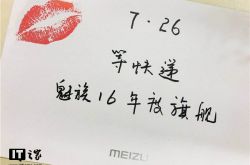 7·26
等快递
魅族16年被旗舰
MEIZU
IT之家